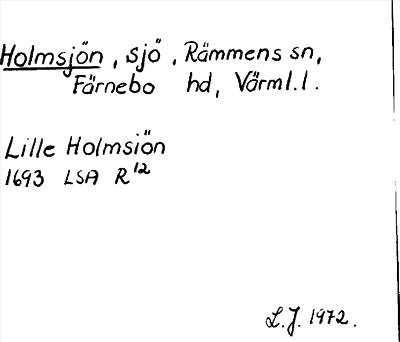 Holmsjön, sjö, Rämmens sn,
Färnebo hd, Värml.l.
Lille Holmsiön
1693 LSA R12
L.J. 1972.